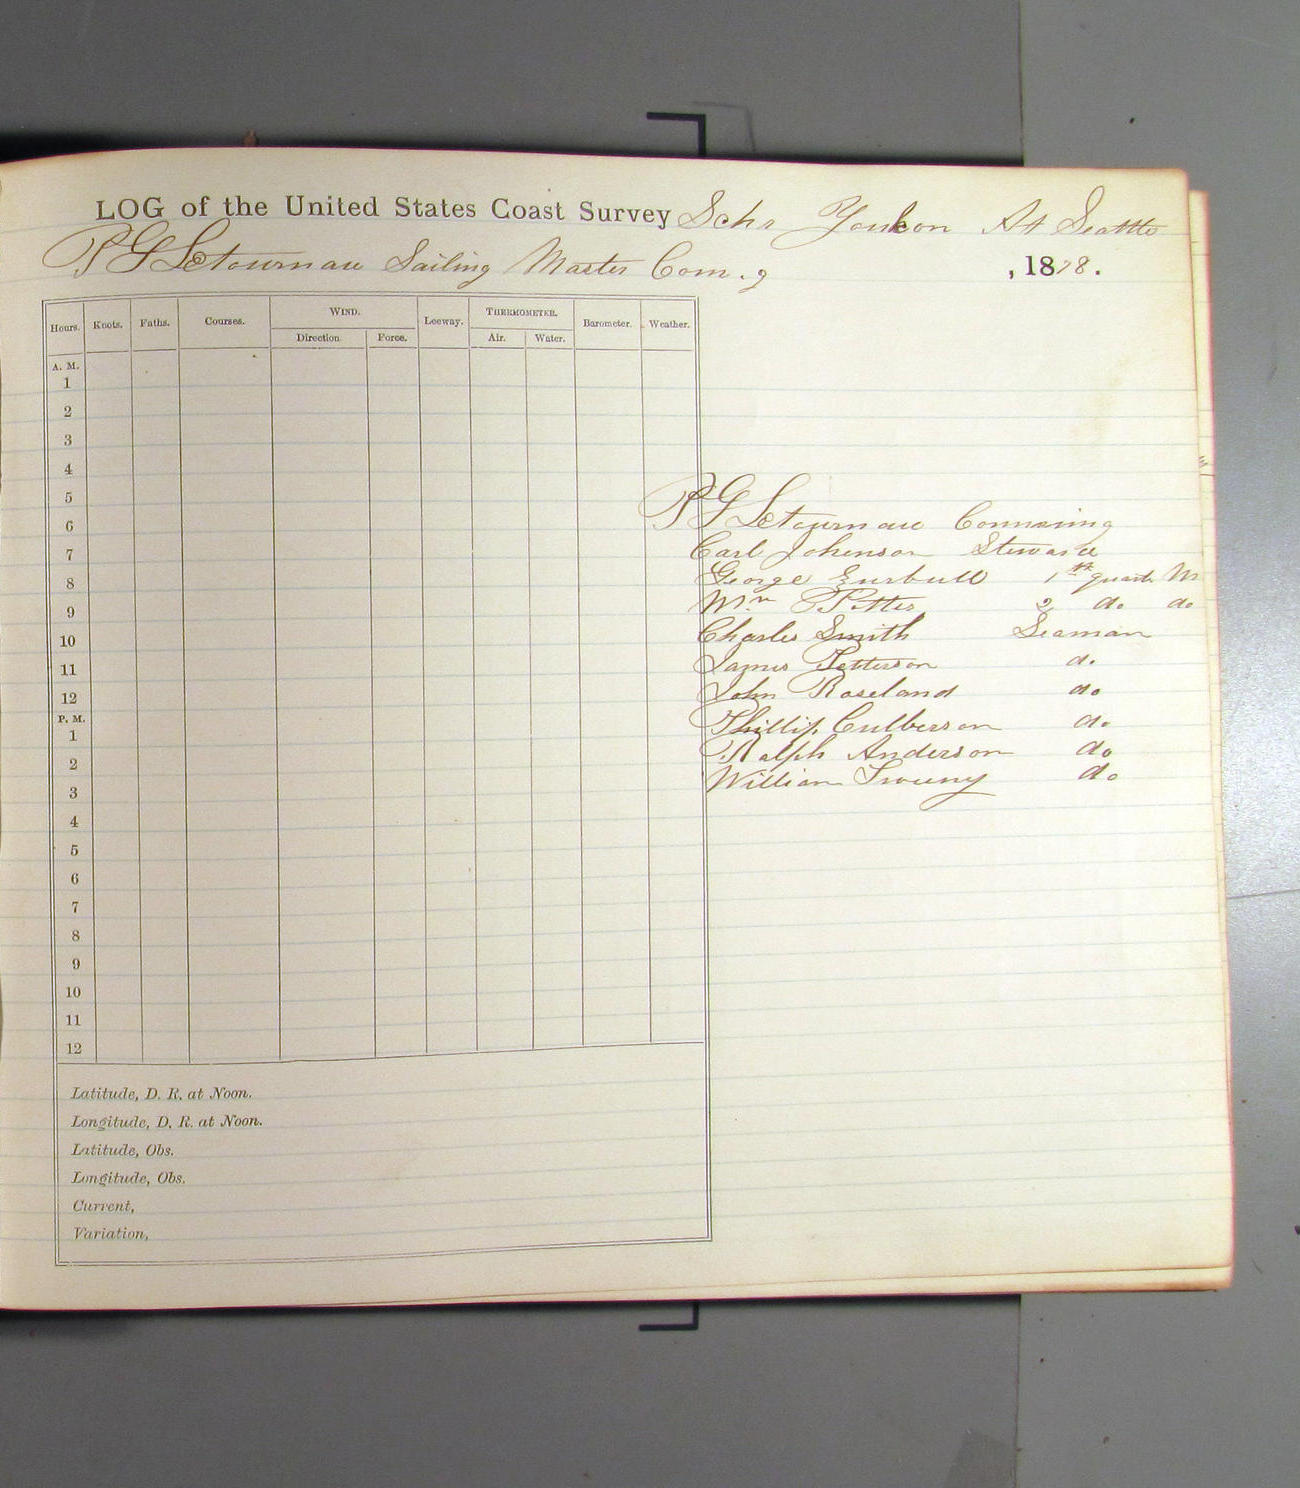 LOG of the United States Coast Survey Schr Youkon At Seattle
P G Letournau Sailing Master Com.g , 1878.
Hours. Knots. Faths. Courses. WIND. Leeway. THERMOMETER. Barometer. Weather.
Direction Force. Air. Water.
A. M.
1
2
3
4
5
6 P G Letournau Comm
7 Carl Johenson Steward
8 George 1st quart M
9 Wm 2 do do
10 Charles Smith Seaman
11 James Petterson do
12 John Roseland do
P. M.
1 Phillip Culberson do
2 Ralph Anderson do
3 William do
4
5
6
7
8
9
10
11
12
Latitude, D. R. at Noon.
Longitude, D. R. at Noon.
Latitude, Obs.
Longitude, Obs.
Current,
Variation,